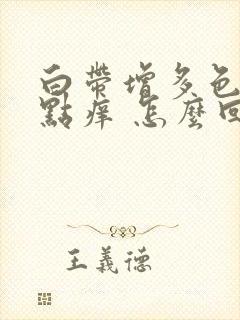 白帶增多色
點痒 怎麼回
王義德